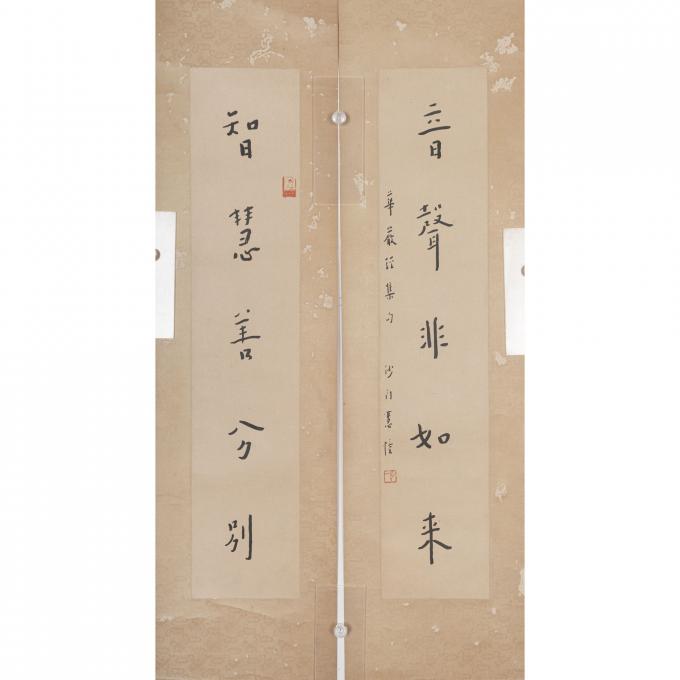 音聲非如来
華嚴經集句 沙門慧
智慧善分别